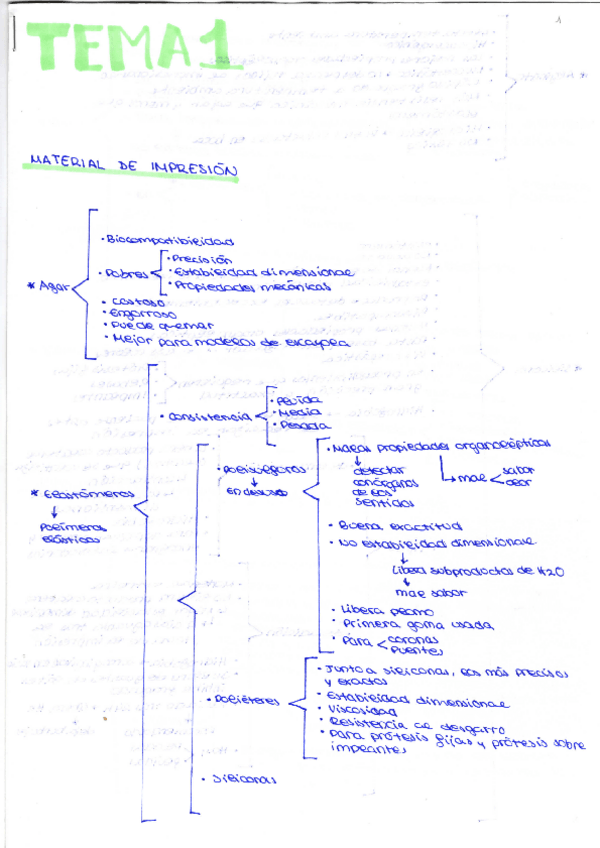 1
TEMA 1
MATERIAL DE IMPRESIÓN
* Agar
· Biocompatibilidad
· Pobres
· Precisión
· Estabilidad dimensional
· Propiedades mecánicas
· Costoso
· Engorroso
· Puede quemar
· Mejor para modelos de escayola
* Elastómeros
↓
polímeros
elásticos
· Consistencia
· Fluida
· Media
· Pesada
· Polisulfuros
↓
En desuso
· Malas propiedades organolépticas
↓
detectar
con órganos
de los
sentidos
→ mal
sabor
olor
· Buena exactitud
· No estabilidad dimensional
↓
Libera subproductos de H2O
↓
mal sabor
· Libera plomo
· Primera goma usada
· Para
coronas
puentes
· Poliéteres
· Junto a siliconas, los más precisos
y exactos
· Estabilidad dimensional
· Viscosidad
· Resistencia al desgarro
· Para prótesis fijas y prótesis sobre
implantes
· Siliconas